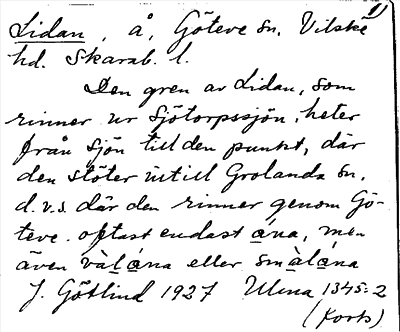 1)
Lidan, å, Göteve sn. Vilske
hd. Skarab. l.
Den gren av Lidan, som
rinner ur Sjötorpssjön, heter
från sjön till den punkt, där
den stöter intill Grolanda sn.
d.v.s. där den rinner genom Gö-
teve. oftast endast ána, men
även vàlána eller smàlána
J. Götlind 1927 Ulma 1345:2
(forts)